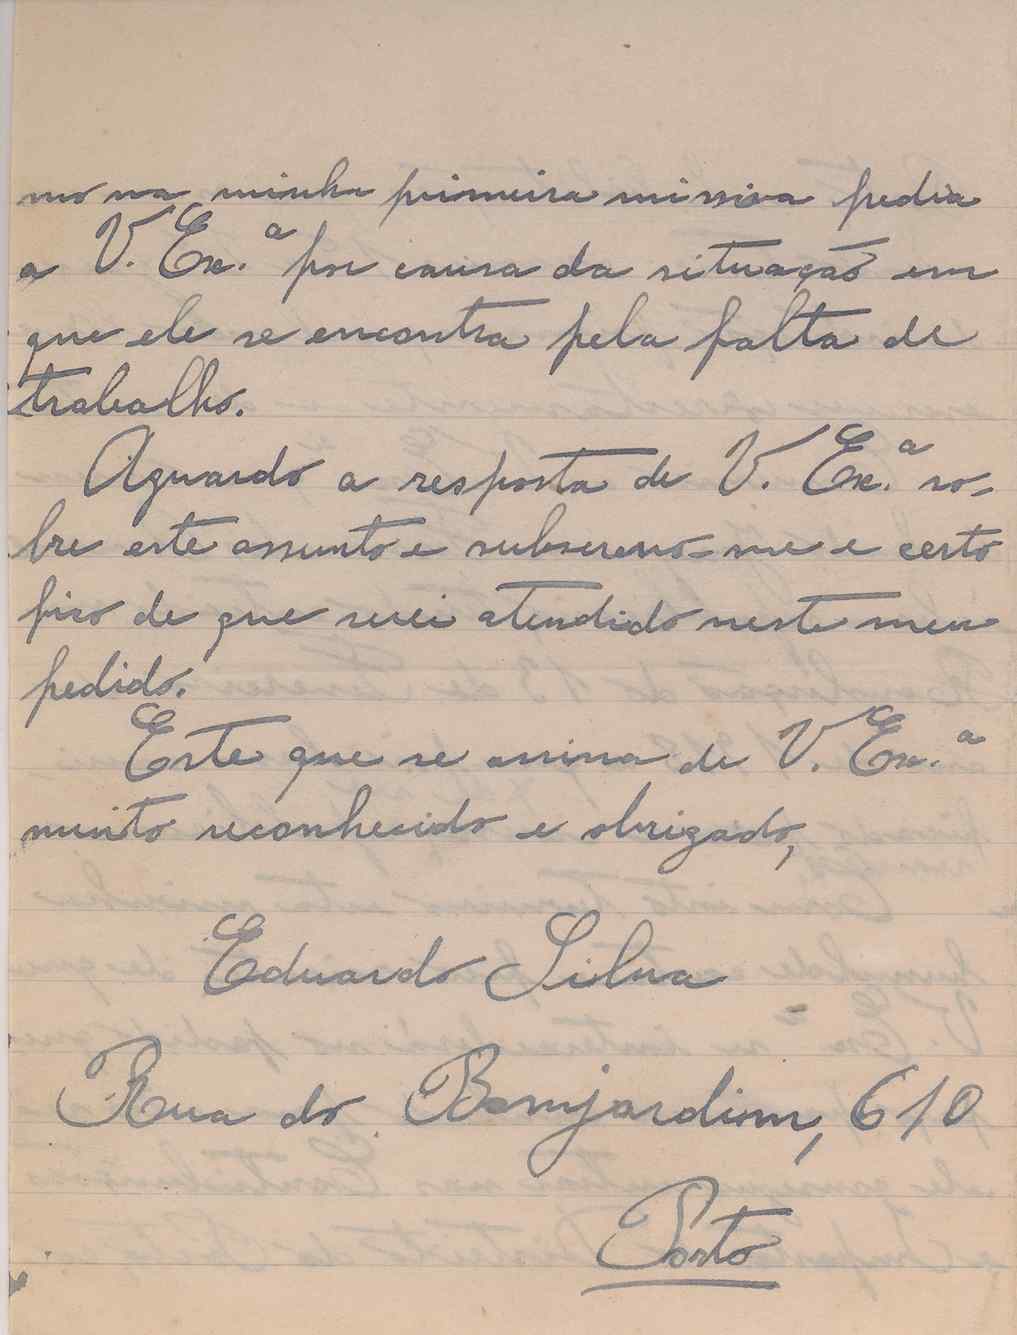 mo na minha primeira missiva pedia
a V. Ex.ª por causa da situação em
que ele se encontra pela falta de
trabalho.
Aguardo a resposta de V. Ex.ª so-
bre este assunto e subscrevo-me e certo
fico de que serei atendido neste meu
pedido.
Este que se assina de V. Ex.ª
muito reconhecido e obrigado,
Eduardo Silva
Rua do Bomjardim, 610
Porto